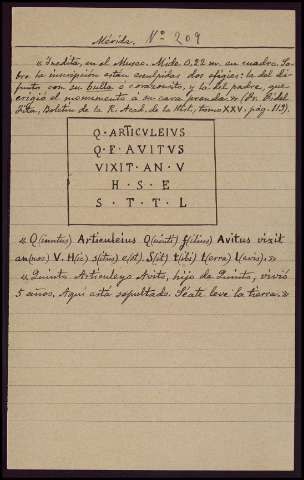 Mérida. Nº 209
« Inedita, en el Museo. Mide 0,22 m. en cuadro. So-
bre la inscripción están esculpidas dos efigies: la del di-
funto con su bulla o corazoncito, y la del padre, que
erigió el monumento á su cara prenda » (Dr. Fidel
Fita, Boletín de la R. Acad. de la Hist., tomo XXV. pág. 112).
Q · ARTICVLEIVS
Q · F · AVITVS
VIXIT · AN · V
H · S · E
S · T · T · L
« Q(uintus) Articuleius Q(uinti) f(ilius) Avitus vixit
an(nos) V. H(ic) s(itus) e(st). S(it) t(ibi) t(erra) l(evis). »
« Quinto Articuleyo Avito, hijo de Quinto, vivió
5 años. Aquí está sepultado. Séate leve la tierra. »